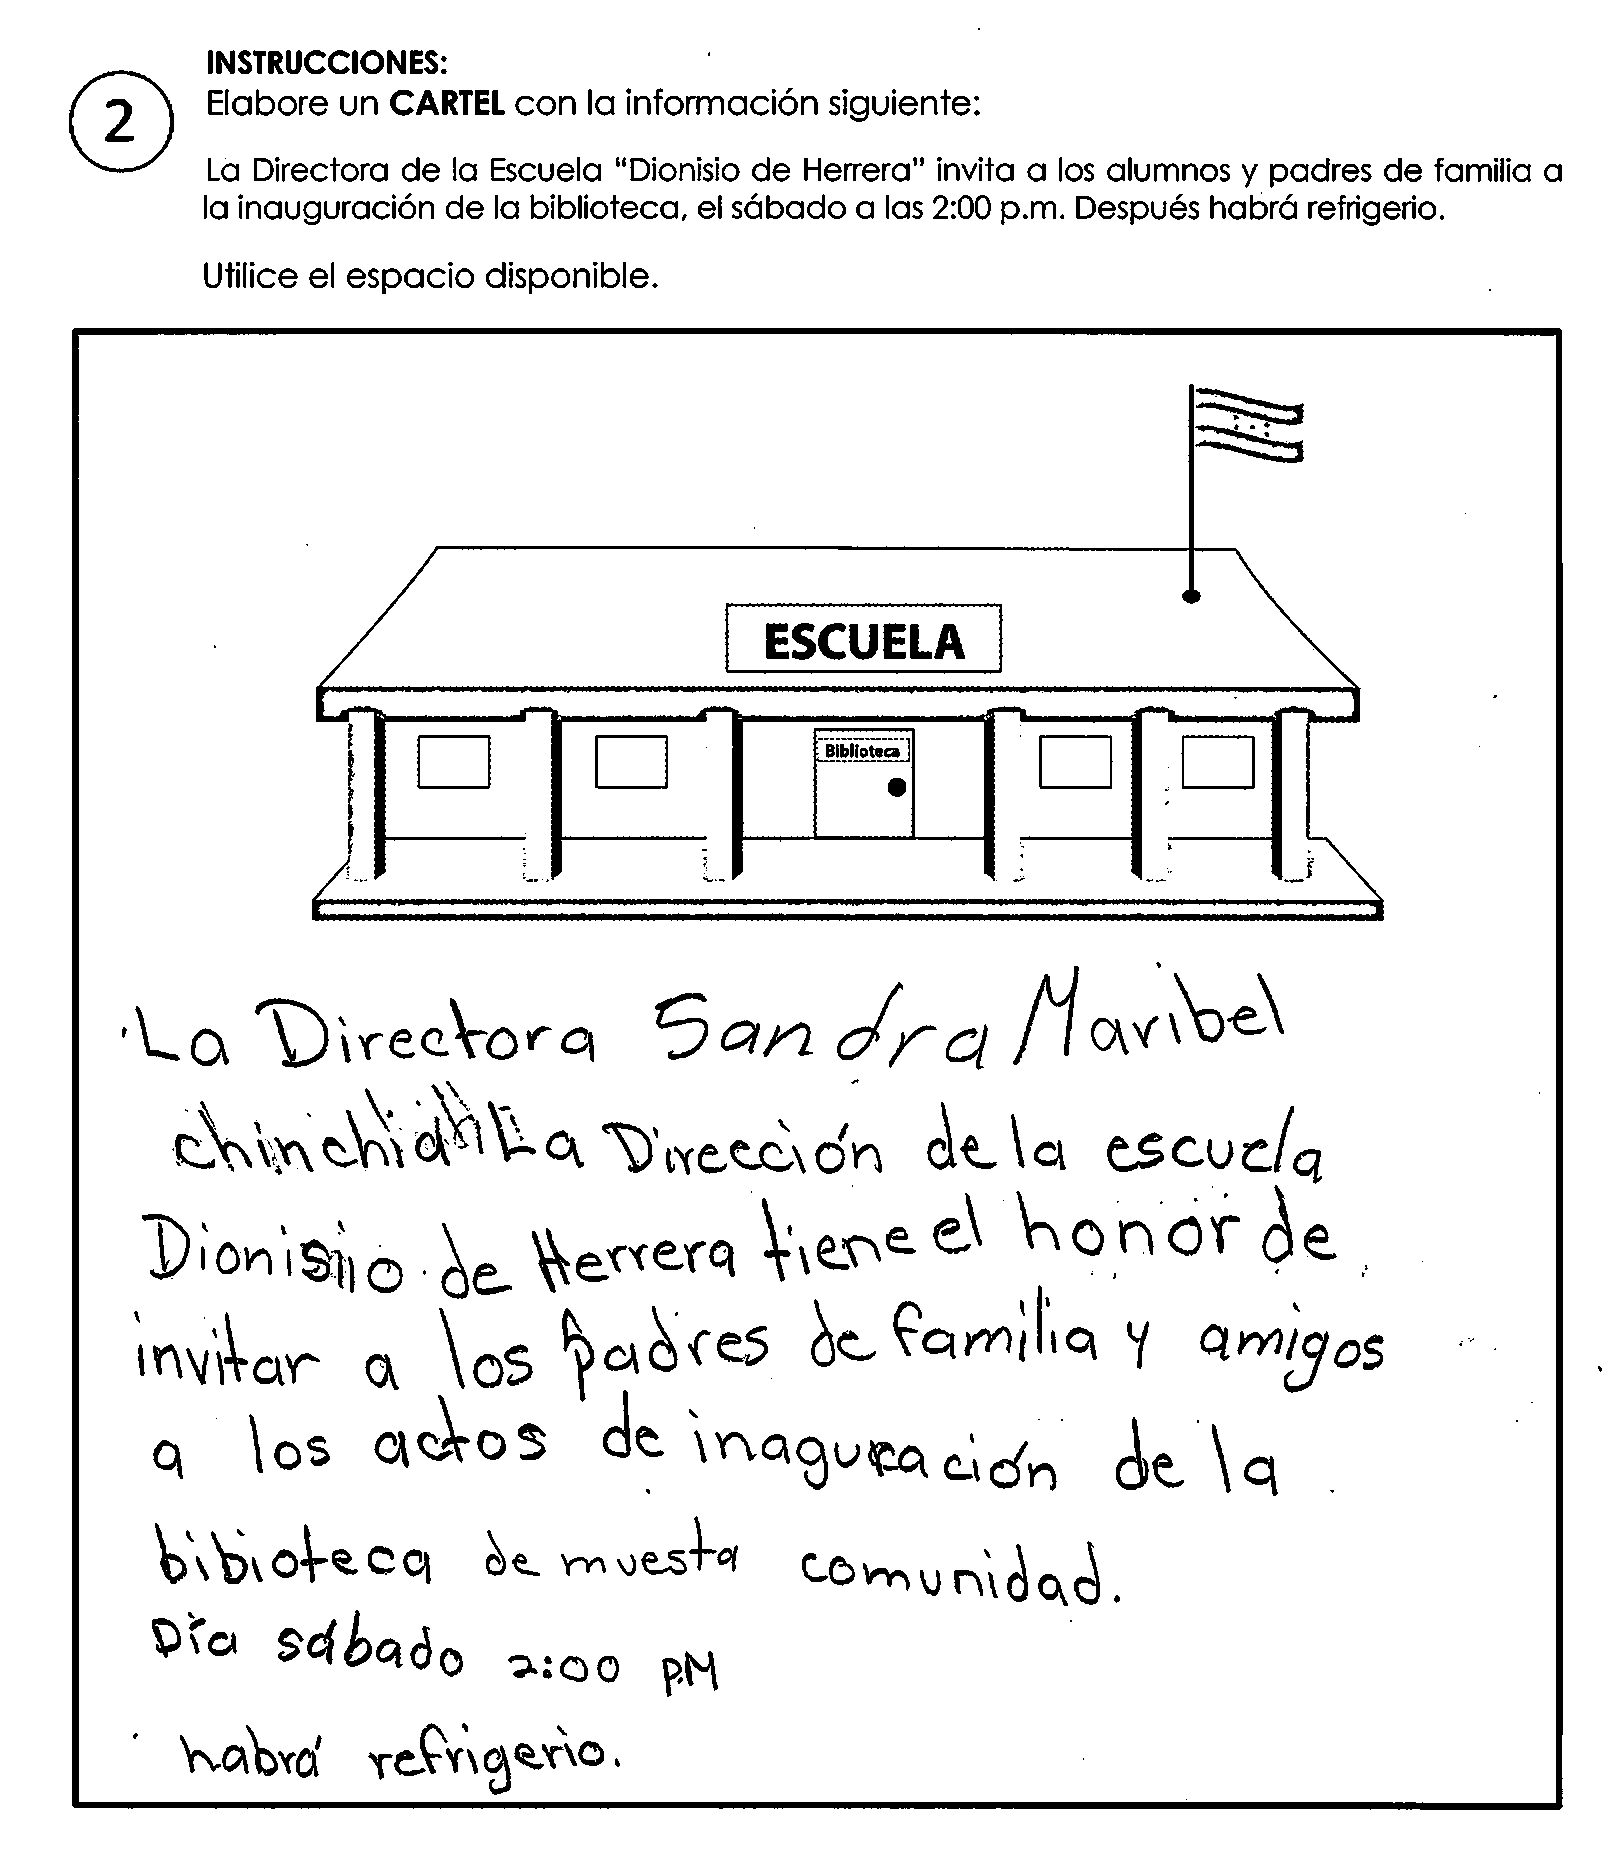 INSTRUCCIONES:
2
Elabore un CARTEL con la información siguiente:
La Directora de la Escuela "Dionisio de Herrera" invita a los alumnos y padres de familia a
la inauguración de la biblioteca, el sábado a las 2:00 p.m. Después habrá refrigerio.
Utilice el espacio disponible.
ESCUELA
Biblioteca
La Directora Sandra Maribel
La Dirección de la escuela
Dionisio de Herrera tiene el honor de
invitar a los padres de familia y amigos
a los actos de inaguración de la
bibioteca de muesta comunidad.
Día sábado 2:00 PM
habrá refrigerio.